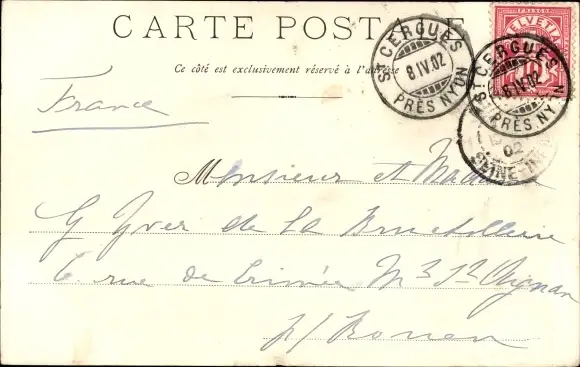 CARTE POSTALE
Ce côté est exclusivement réservé à l'adresse
FRANCO
HELVETIA
ST CERGUES
8 IV.02
PRÈS NYON
ST CERGUES
8 IV.02
PRÈS NYON
02
SEINE-INF
France
Monsieur et Madame
G Yver de la
6 rue de Crimée Mt St Aignan
p/ Rouen